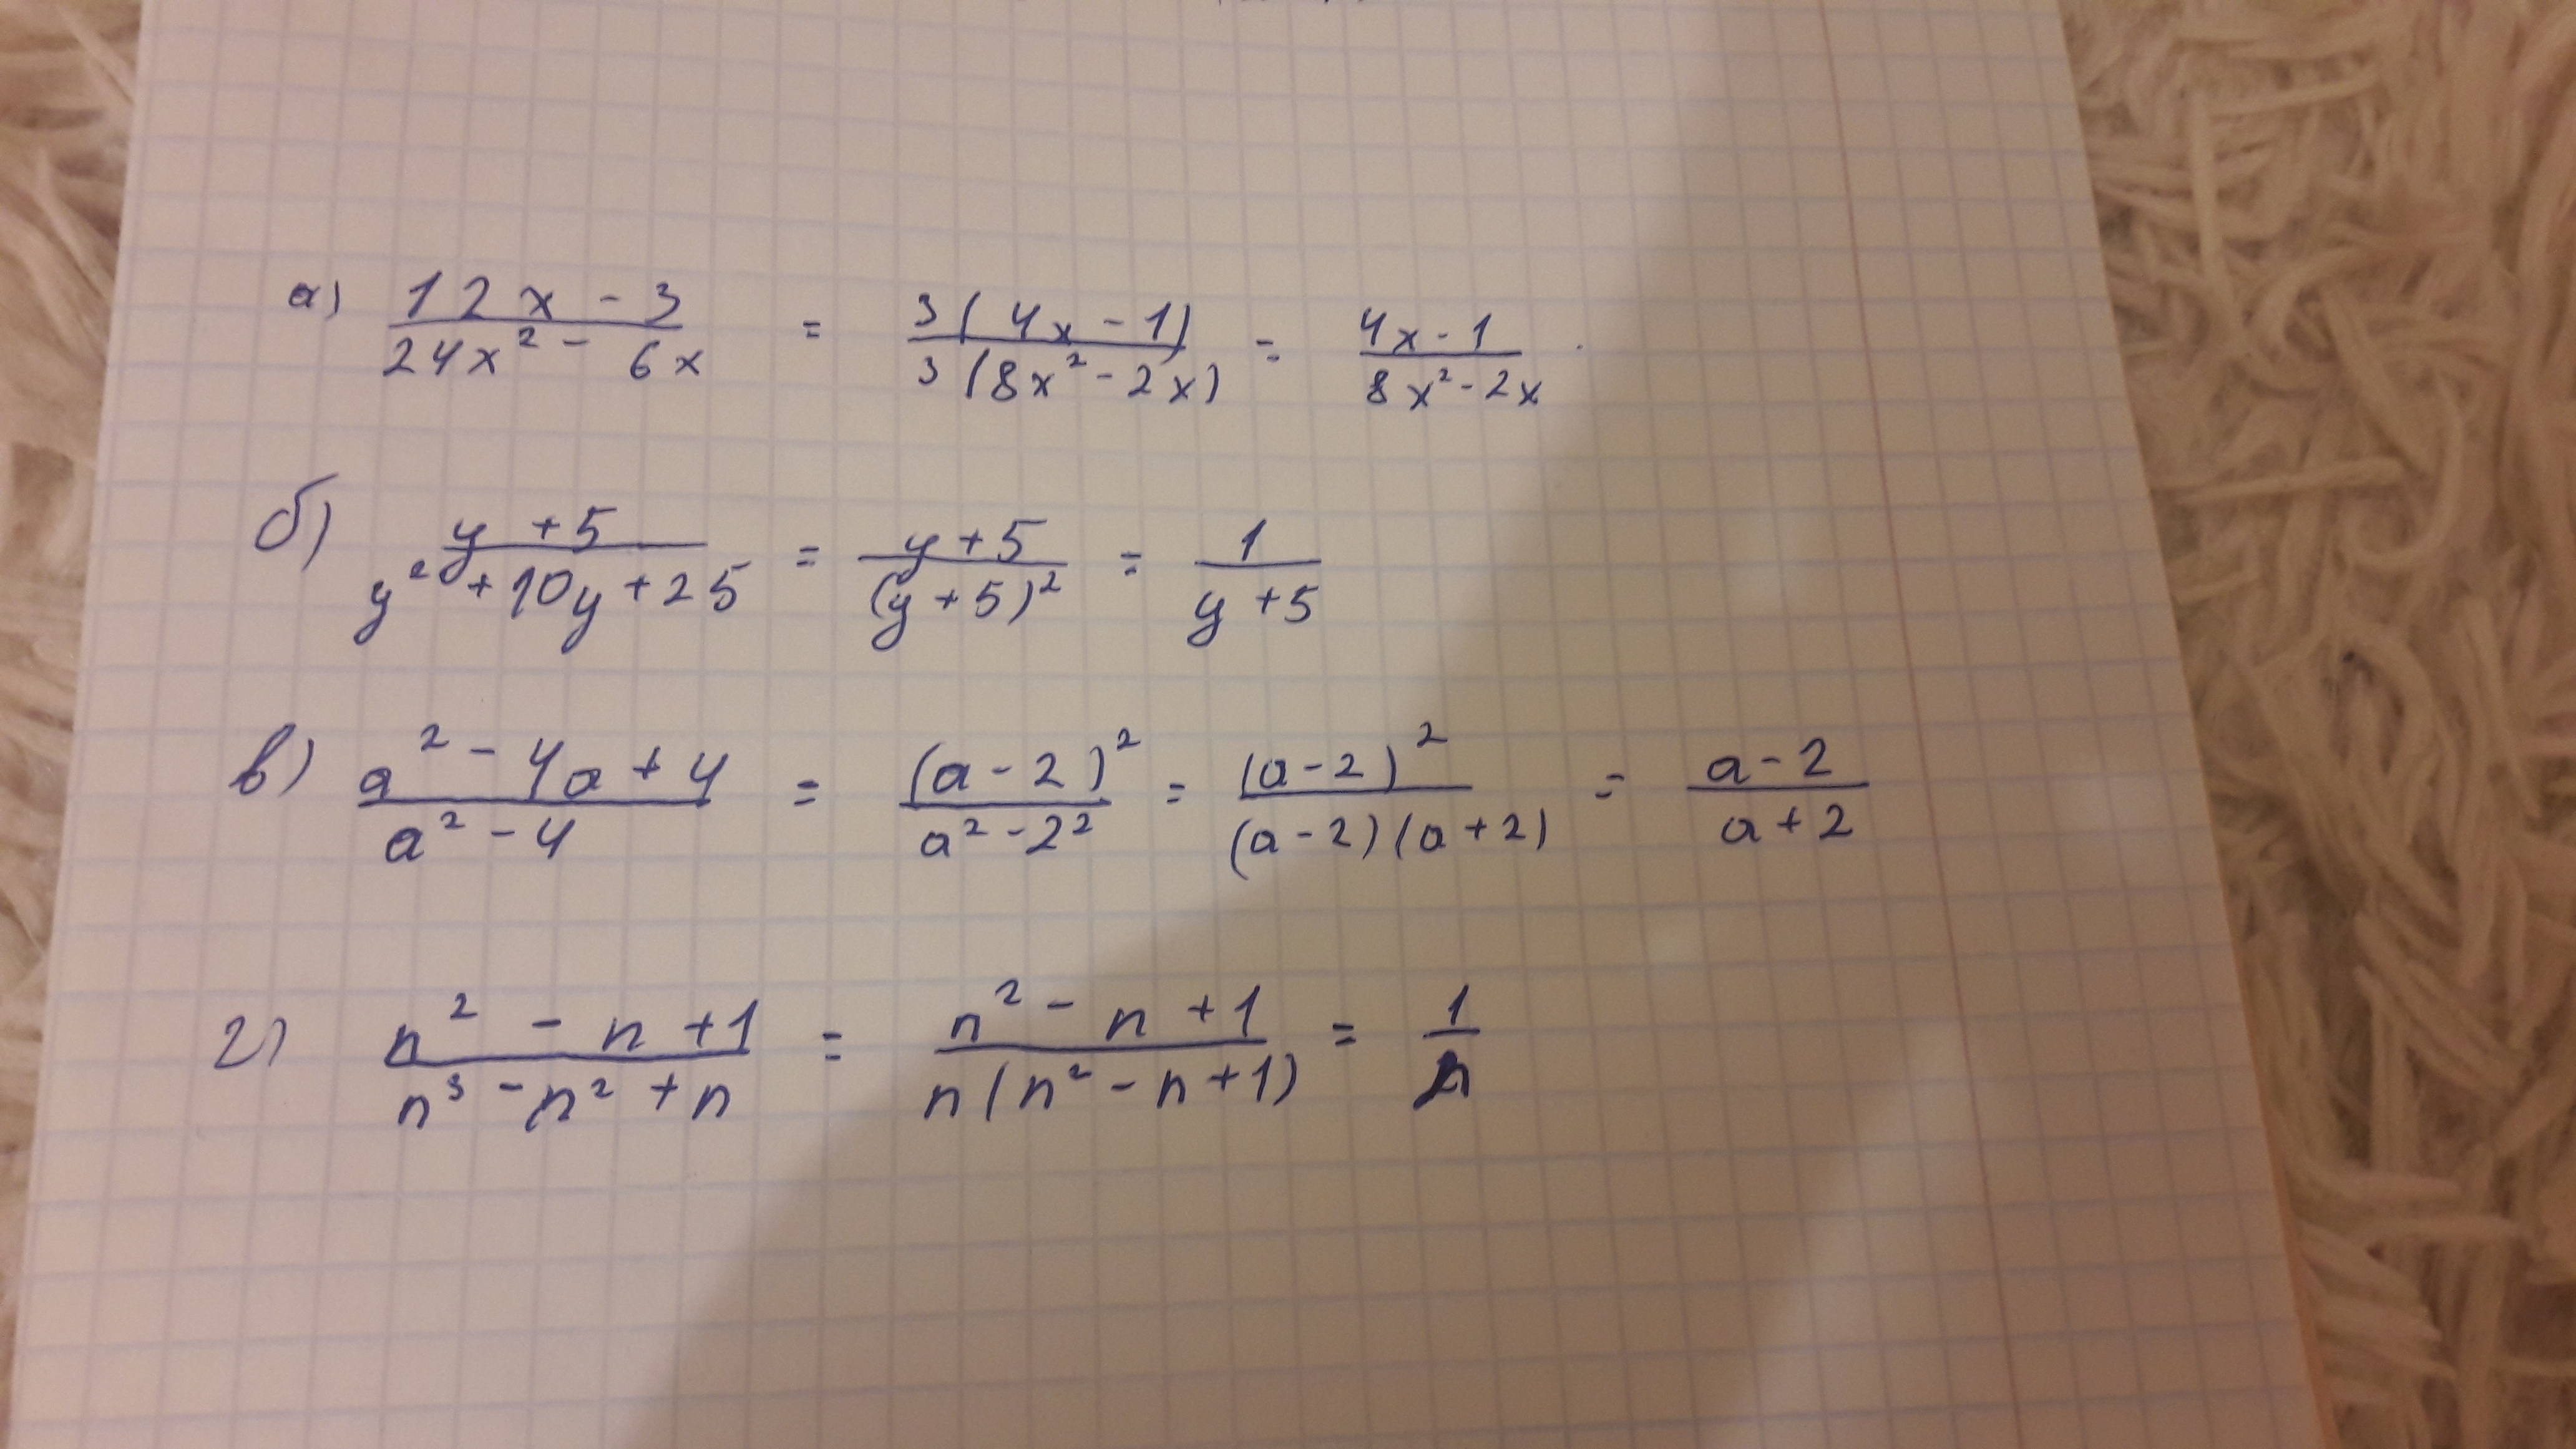 а) (12x - 3)/(24x² - 6x) = 3(4x - 1)/3(8x² - 2x) = (4x - 1)/(8x² - 2x)
б) (y + 5)/(y² + 10y + 25) = (y + 5)/(y + 5)² = 1/(y + 5)
в) (a² - 4a + 4)/(a² - 4) = (a - 2)²/(a² - 2²) = (a - 2)²/(a - 2)(a + 2) = (a - 2)/(a + 2)
г) (n² - n + 1)/(n³ - n² + n) = (n² - n + 1)/n(n² - n + 1) = 1/n